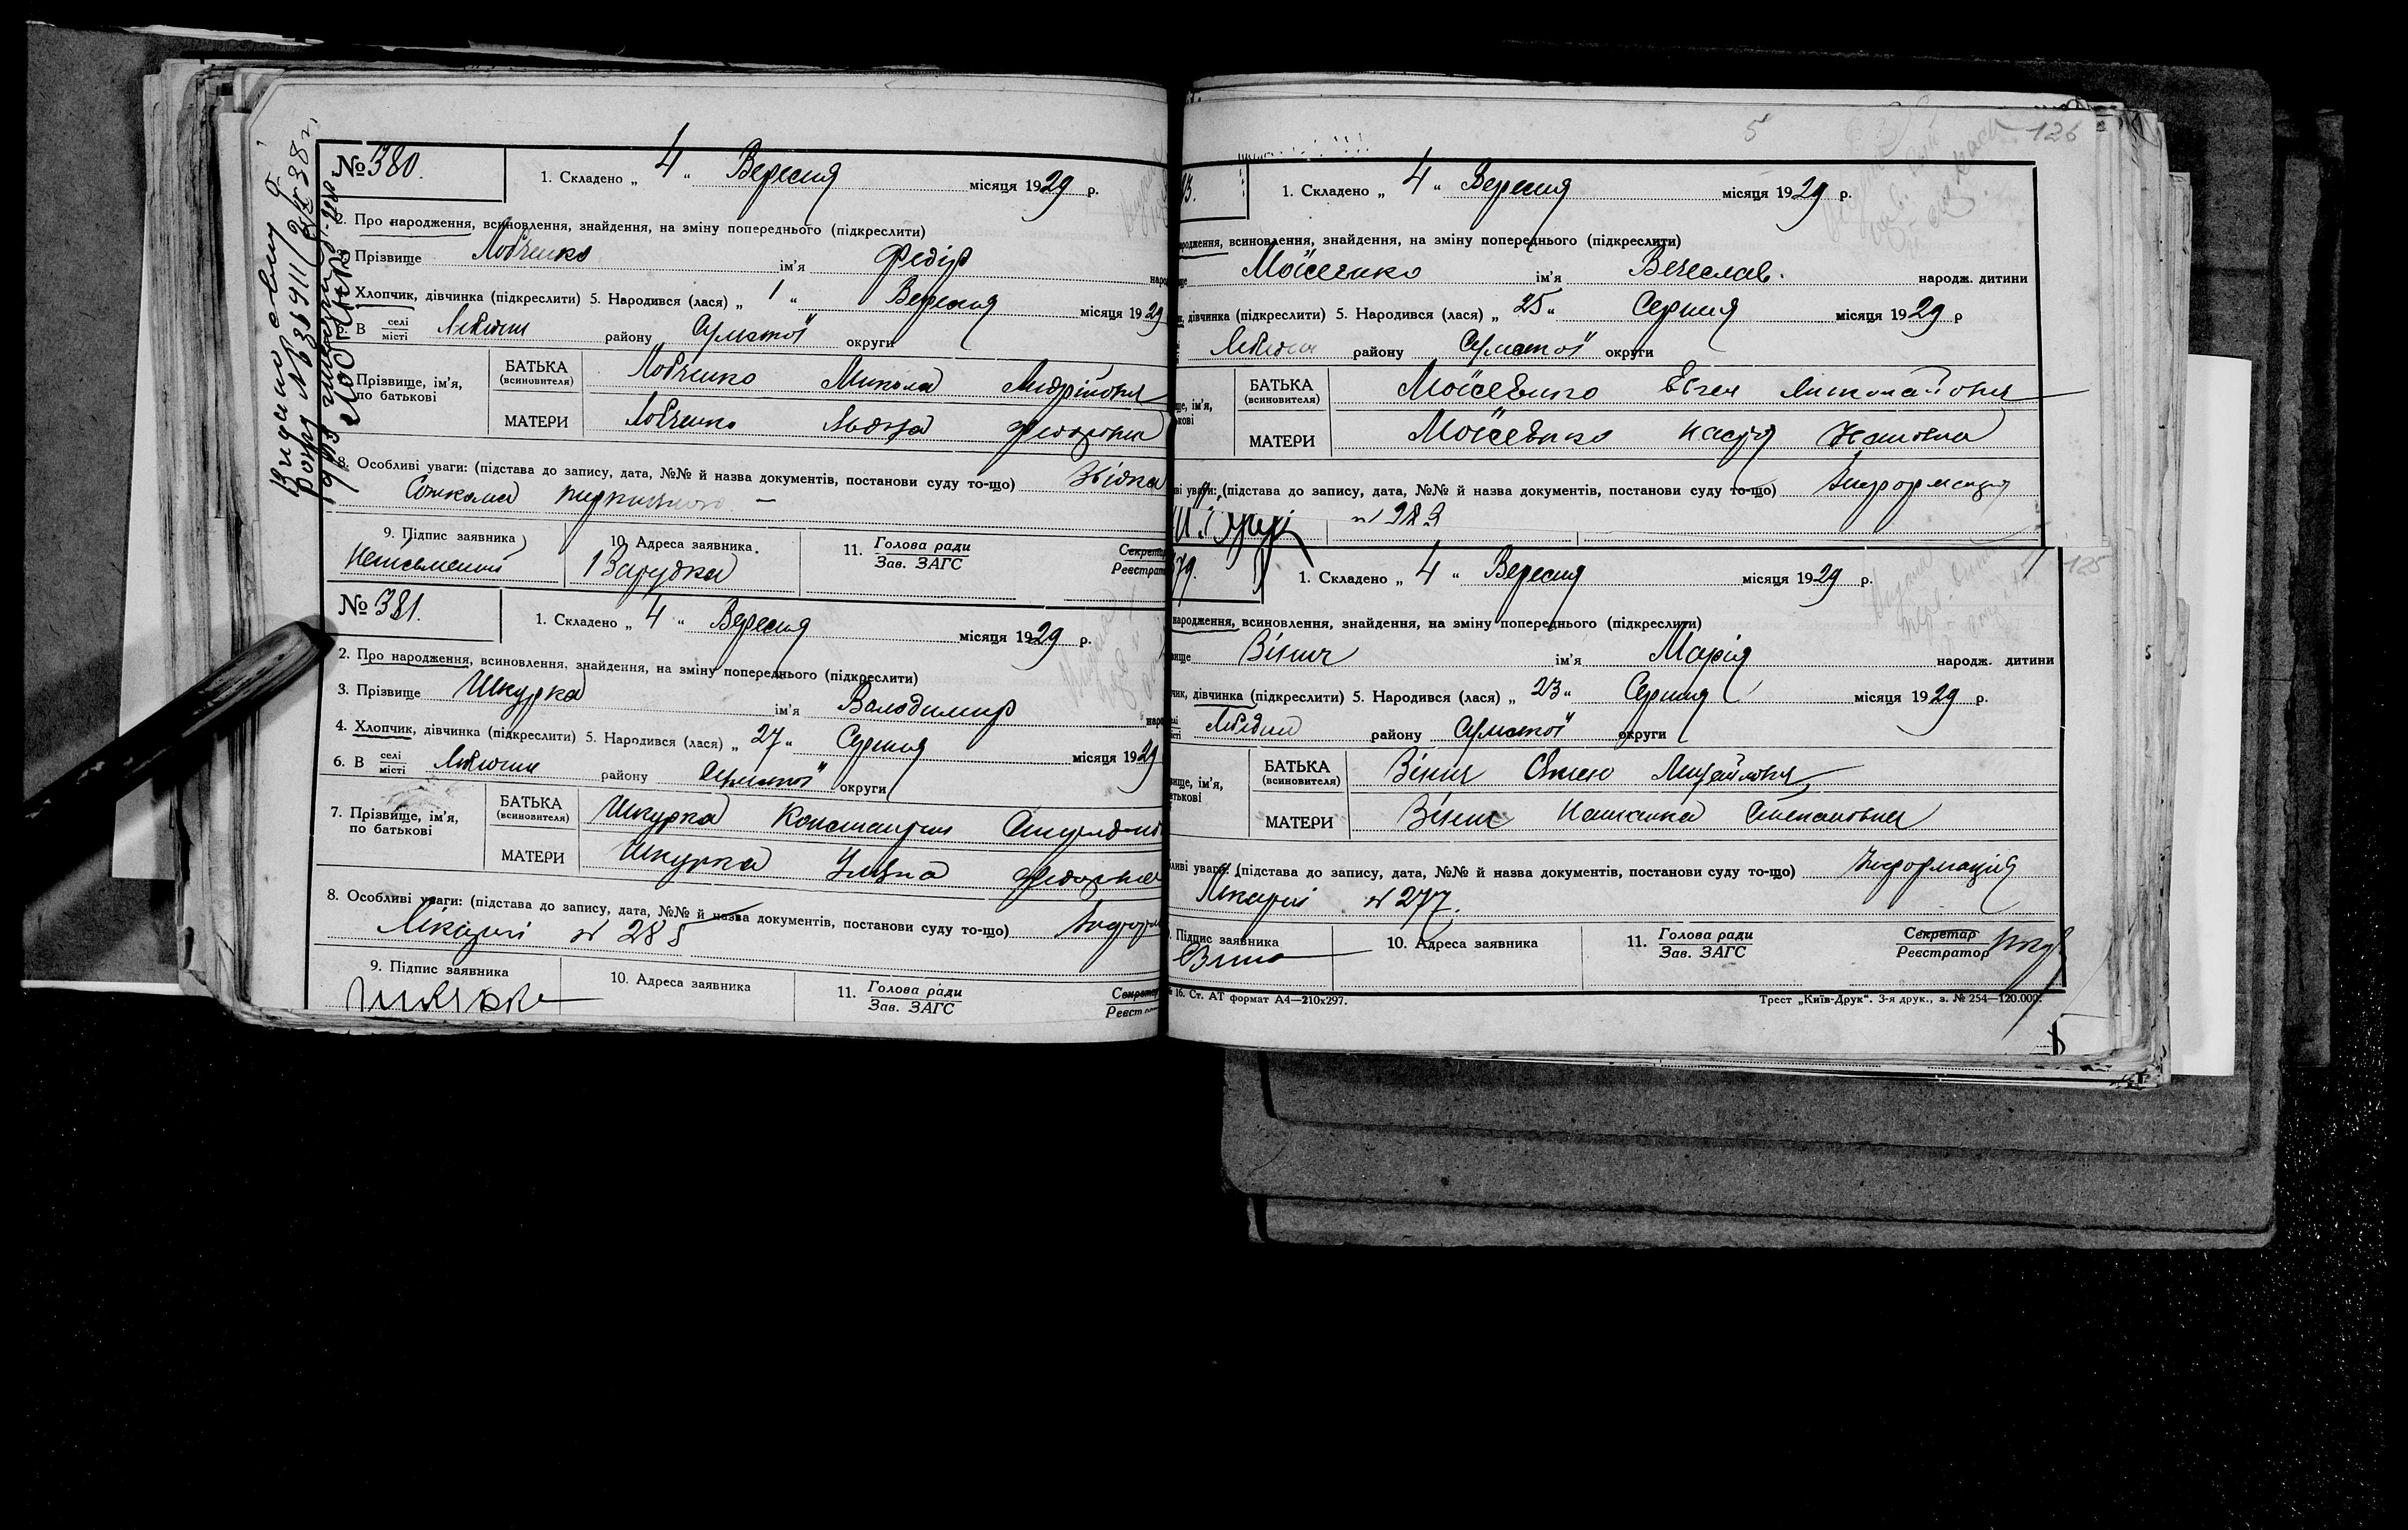 № 380.
1. Складено „ 4 “ Вересня місяця 1929 р.
2. Про народження, всиновлення, знайдення, на зміну попереднього (підкреслити)
3. Прізвище Лобченко ім'я Федір
4. Хлопчик, дівчинка (підкреслити) 5. Народився (лася) „ 1 “ Вересня місяця 1929
6. В селі місті Лебедин району Сумської округи
7. Прізвище, ім'я, по батькові
БАТЬКА (всиновителя) Лобченко Микола Андрійович
МАТЕРИ Лобченко Федоровна
8. Особливі уваги: (підстава до запису, дата, №№ й назва документів, постанови суду то-що)
9. Підпис заявника Неписьменний
10. Адреса заявника. 1 Зарудка
11. Голова ради Зав. ЗАГС
Секретар Реєстрат
№ 381.
1. Складено „ 4 “ Вересня місяця 1929 р.
2. Про народження, всиновлення, знайдення, на зміну попереднього (підкреслити)
3. Прізвище Шкурка ім'я Володимир
4. Хлопчик, дівчинка (підкреслити) 5. Народився (лася) „ 27 “ Серпня місяця 1929
6. В селі місті Лебедин району Сумської округи
7. Прізвище, ім'я, по батькові
БАТЬКА (всиновителя) Шкурка Константин
МАТЕРИ Шкурка Федоровна
8. Особливі уваги: (підстава до запису, дата, №№ й назва документів, постанови суду то-що) Інформ
Лікарні № 285
9. Підпис заявника
10. Адреса заявника
11. Голова ради Зав. ЗАГС
Секретар Реєст
126
1. Складено „ 4 “ Вересня місяця 1929 р.
народження, всиновлення, знайдення, на зміну попереднього (підкреслити)
Моїсеєнко ім'я Вечеслав. народж. дитини
дівчинка (підкреслити) 5. Народився (лася) „ 25 “ Серпня місяця 1929 р
Лебедин району Сумської округи
БАТЬКА (всиновителя) Моїсеєнко Евген Миколайович
МАТЕРИ Моїсеєнко Настя Івановна
уваги: (підстава до запису, дата, №№ й назва документів, постанови суду то-що) Інформация
№ 283
379.
1. Складено „ 4 “ Вересня місяця 1929 р.
125
народження, всиновлення, знайдення, на зміну попереднього (підкреслити)
Вінич ім'я Марія народж. дитини
дівчинка (підкреслити) 5. Народився (лася) „ 23 “ Серпня місяця 1929 р.
Лебедин району Сумської округи
БАТЬКА (всиновителя) Вінич Михайлович
МАТЕРИ Вінич Степановна
уваги: (підстава до запису, дата, №№ й назва документів, постанови суду то-що) Інформация
Лікарні № 277.
Підпис заявника
10. Адреса заявника
11. Голова ради Зав. ЗАГС
Секретар Реєстратор
№ 16. Ст. АТ формат А4—210х297.
Трест „Київ-Друк“. 3-я друк., з. № 254—120.000.